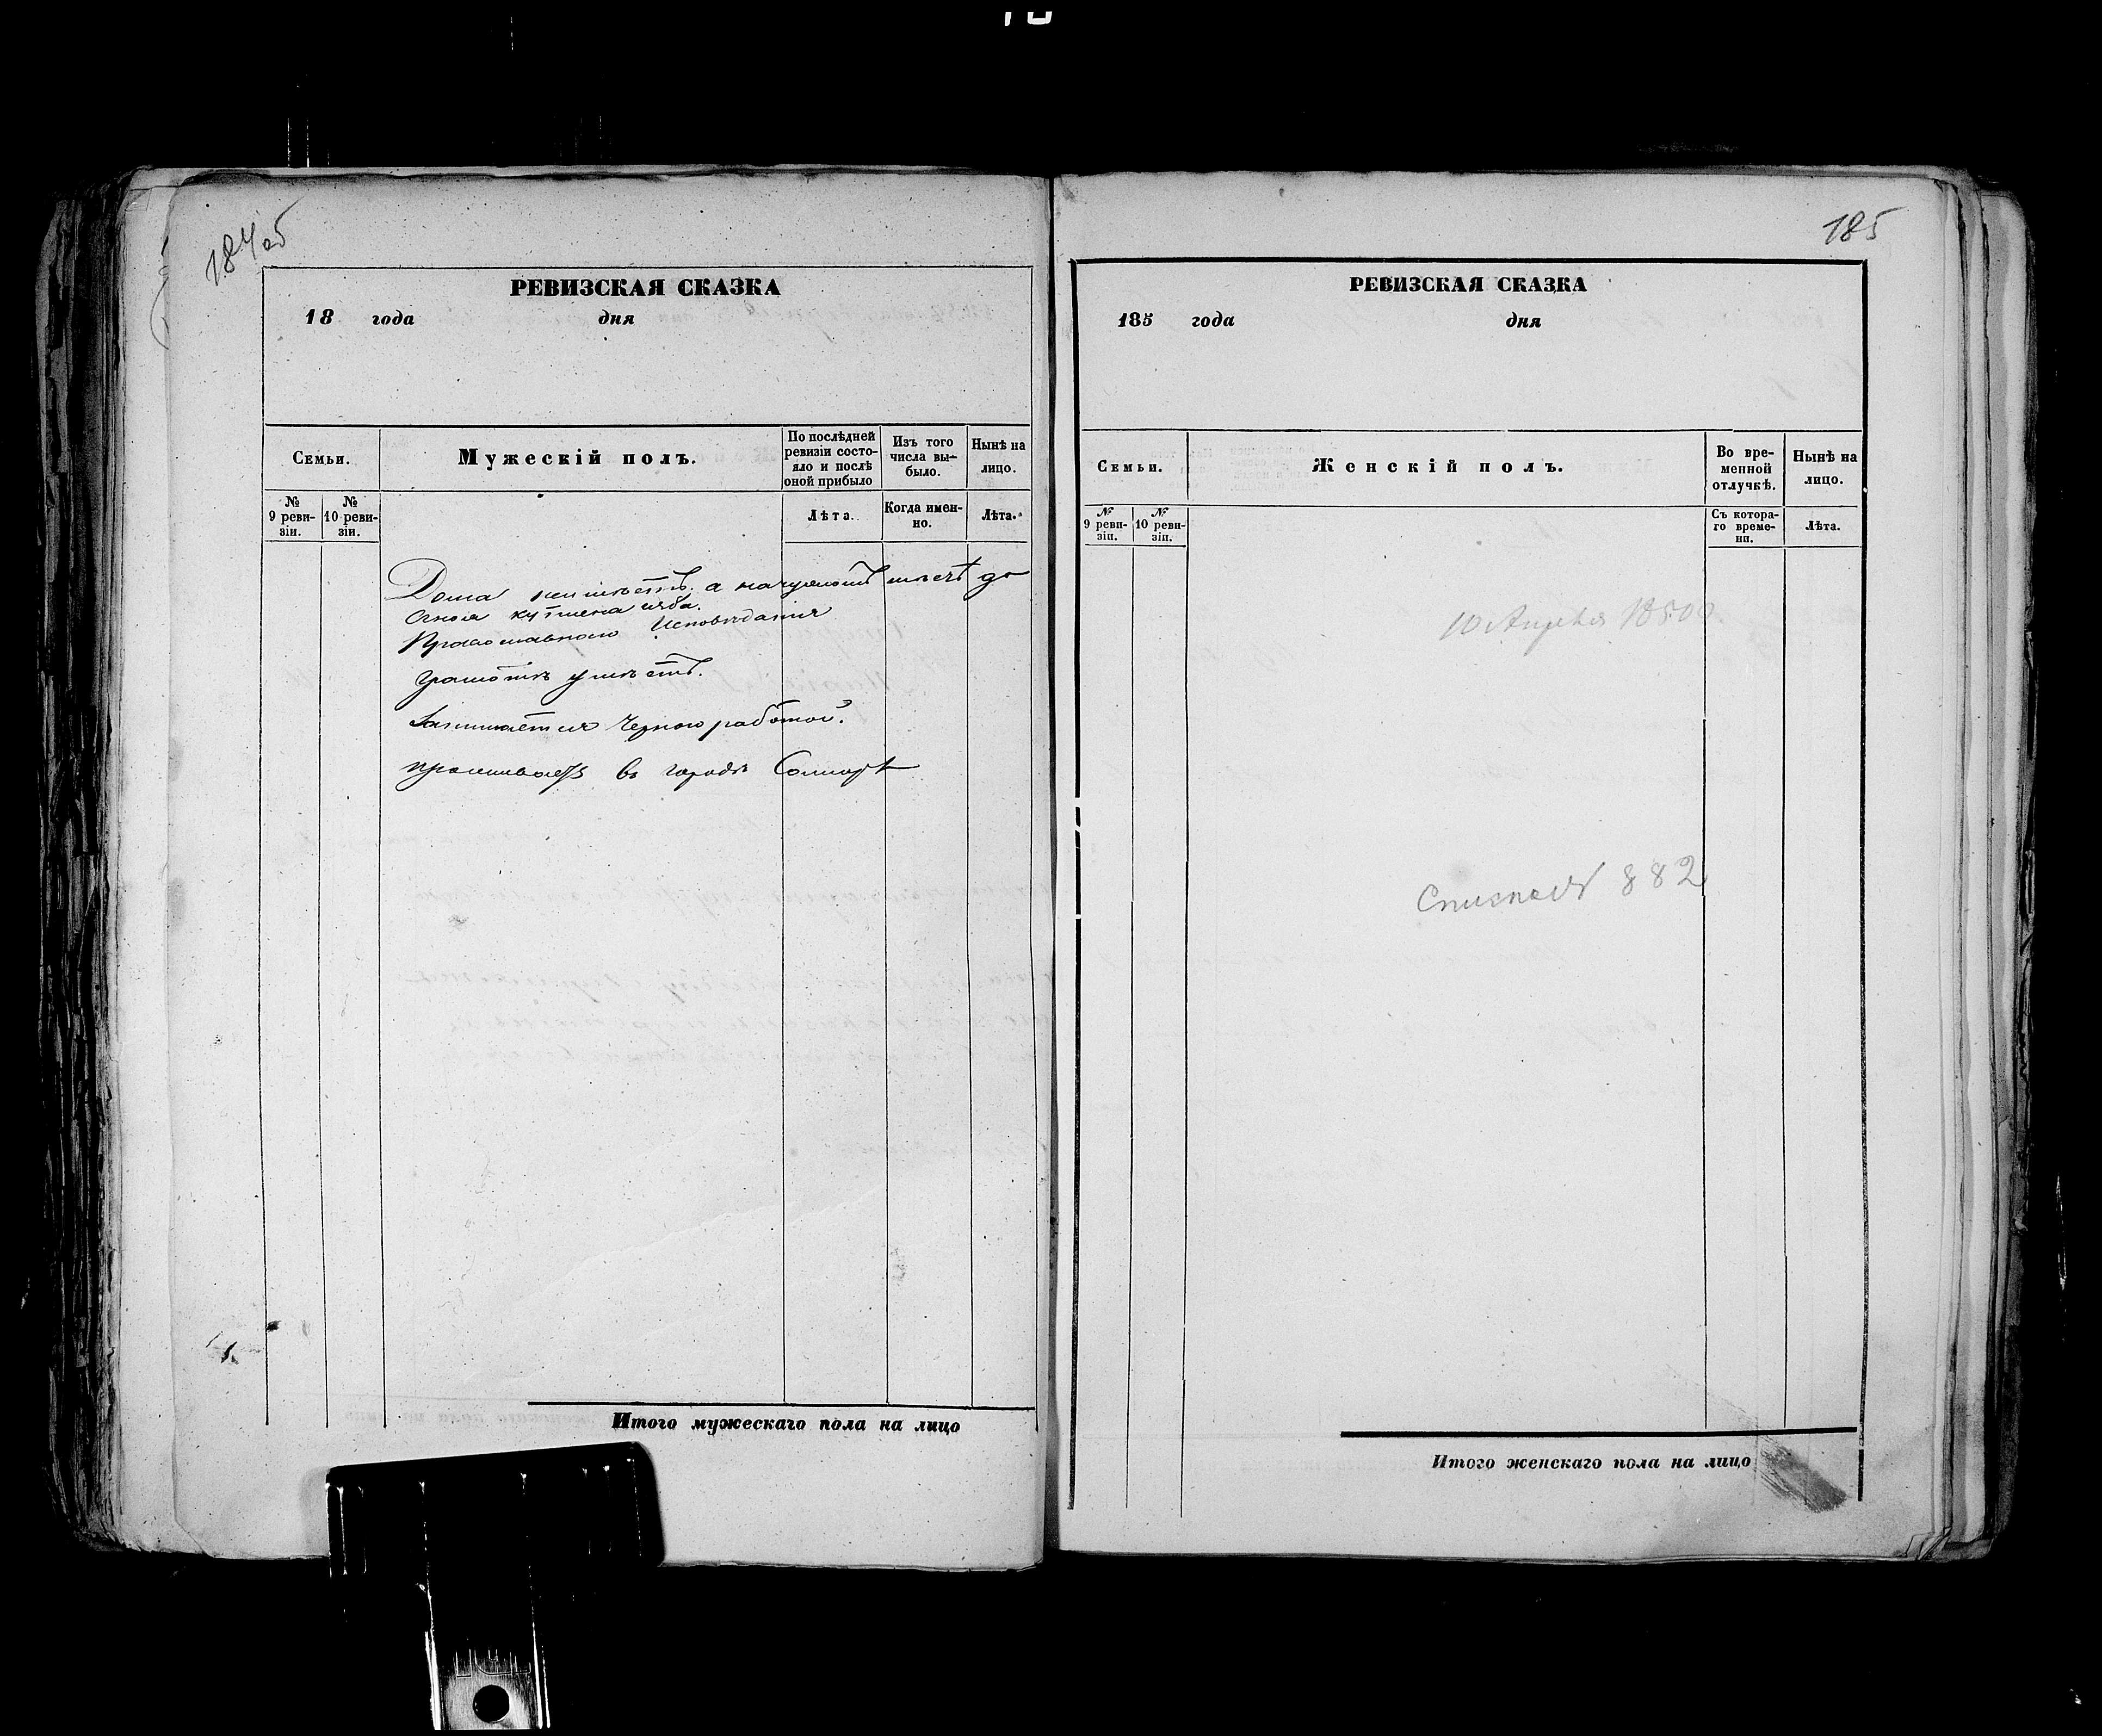 184об
РЕВИЗСКАЯ СКАЗКА
18 года дня
Семьи.
Мужескій полъ.
По послѣдней ревизіи состо-
яло и послѣ
оной прибыло
Изъ того
числа вы-
было.
Нынѣ на
лицо.
№
9 реви-
зіи.
№
10 реви-
зіи.
Лѣта.
Когда имен-
но.
Лѣта.
Дома неимѣетъ. а
Православнаго Исповѣданія
грамотѣ умѣетъ.
Занимается черною работой.
проживаетъ въ городѣ
Итого мужескаго пола на лицо
185
РЕВИЗСКАЯ СКАЗКА
185 года дня
Семьи.
Женскій полъ.
Во вре-
менной
отлучкѣ.
Нынѣ на
лицо.
№
9 реви-
зіи.
№
10 реви-
зіи.
Съ котора-
го време-
ни.
Лѣта.
10 Апреля
882
Итого женскаго пола на лицо